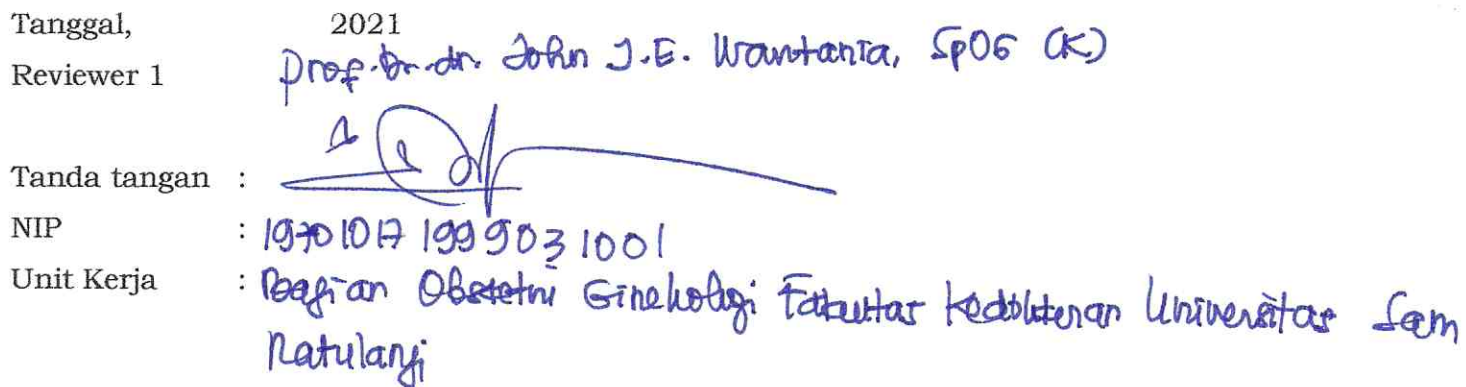 Tanggal, 2021
Reviewer 1 Prof. Dr. dr. John J.E. Wantania, SpOG (K)
Tanda tangan :
NIP : 19701017 199903 1001
Unit Kerja : Bagian Obstetri Ginekologi Fakultas Kedokteran Universitas Sam
Ratulangi